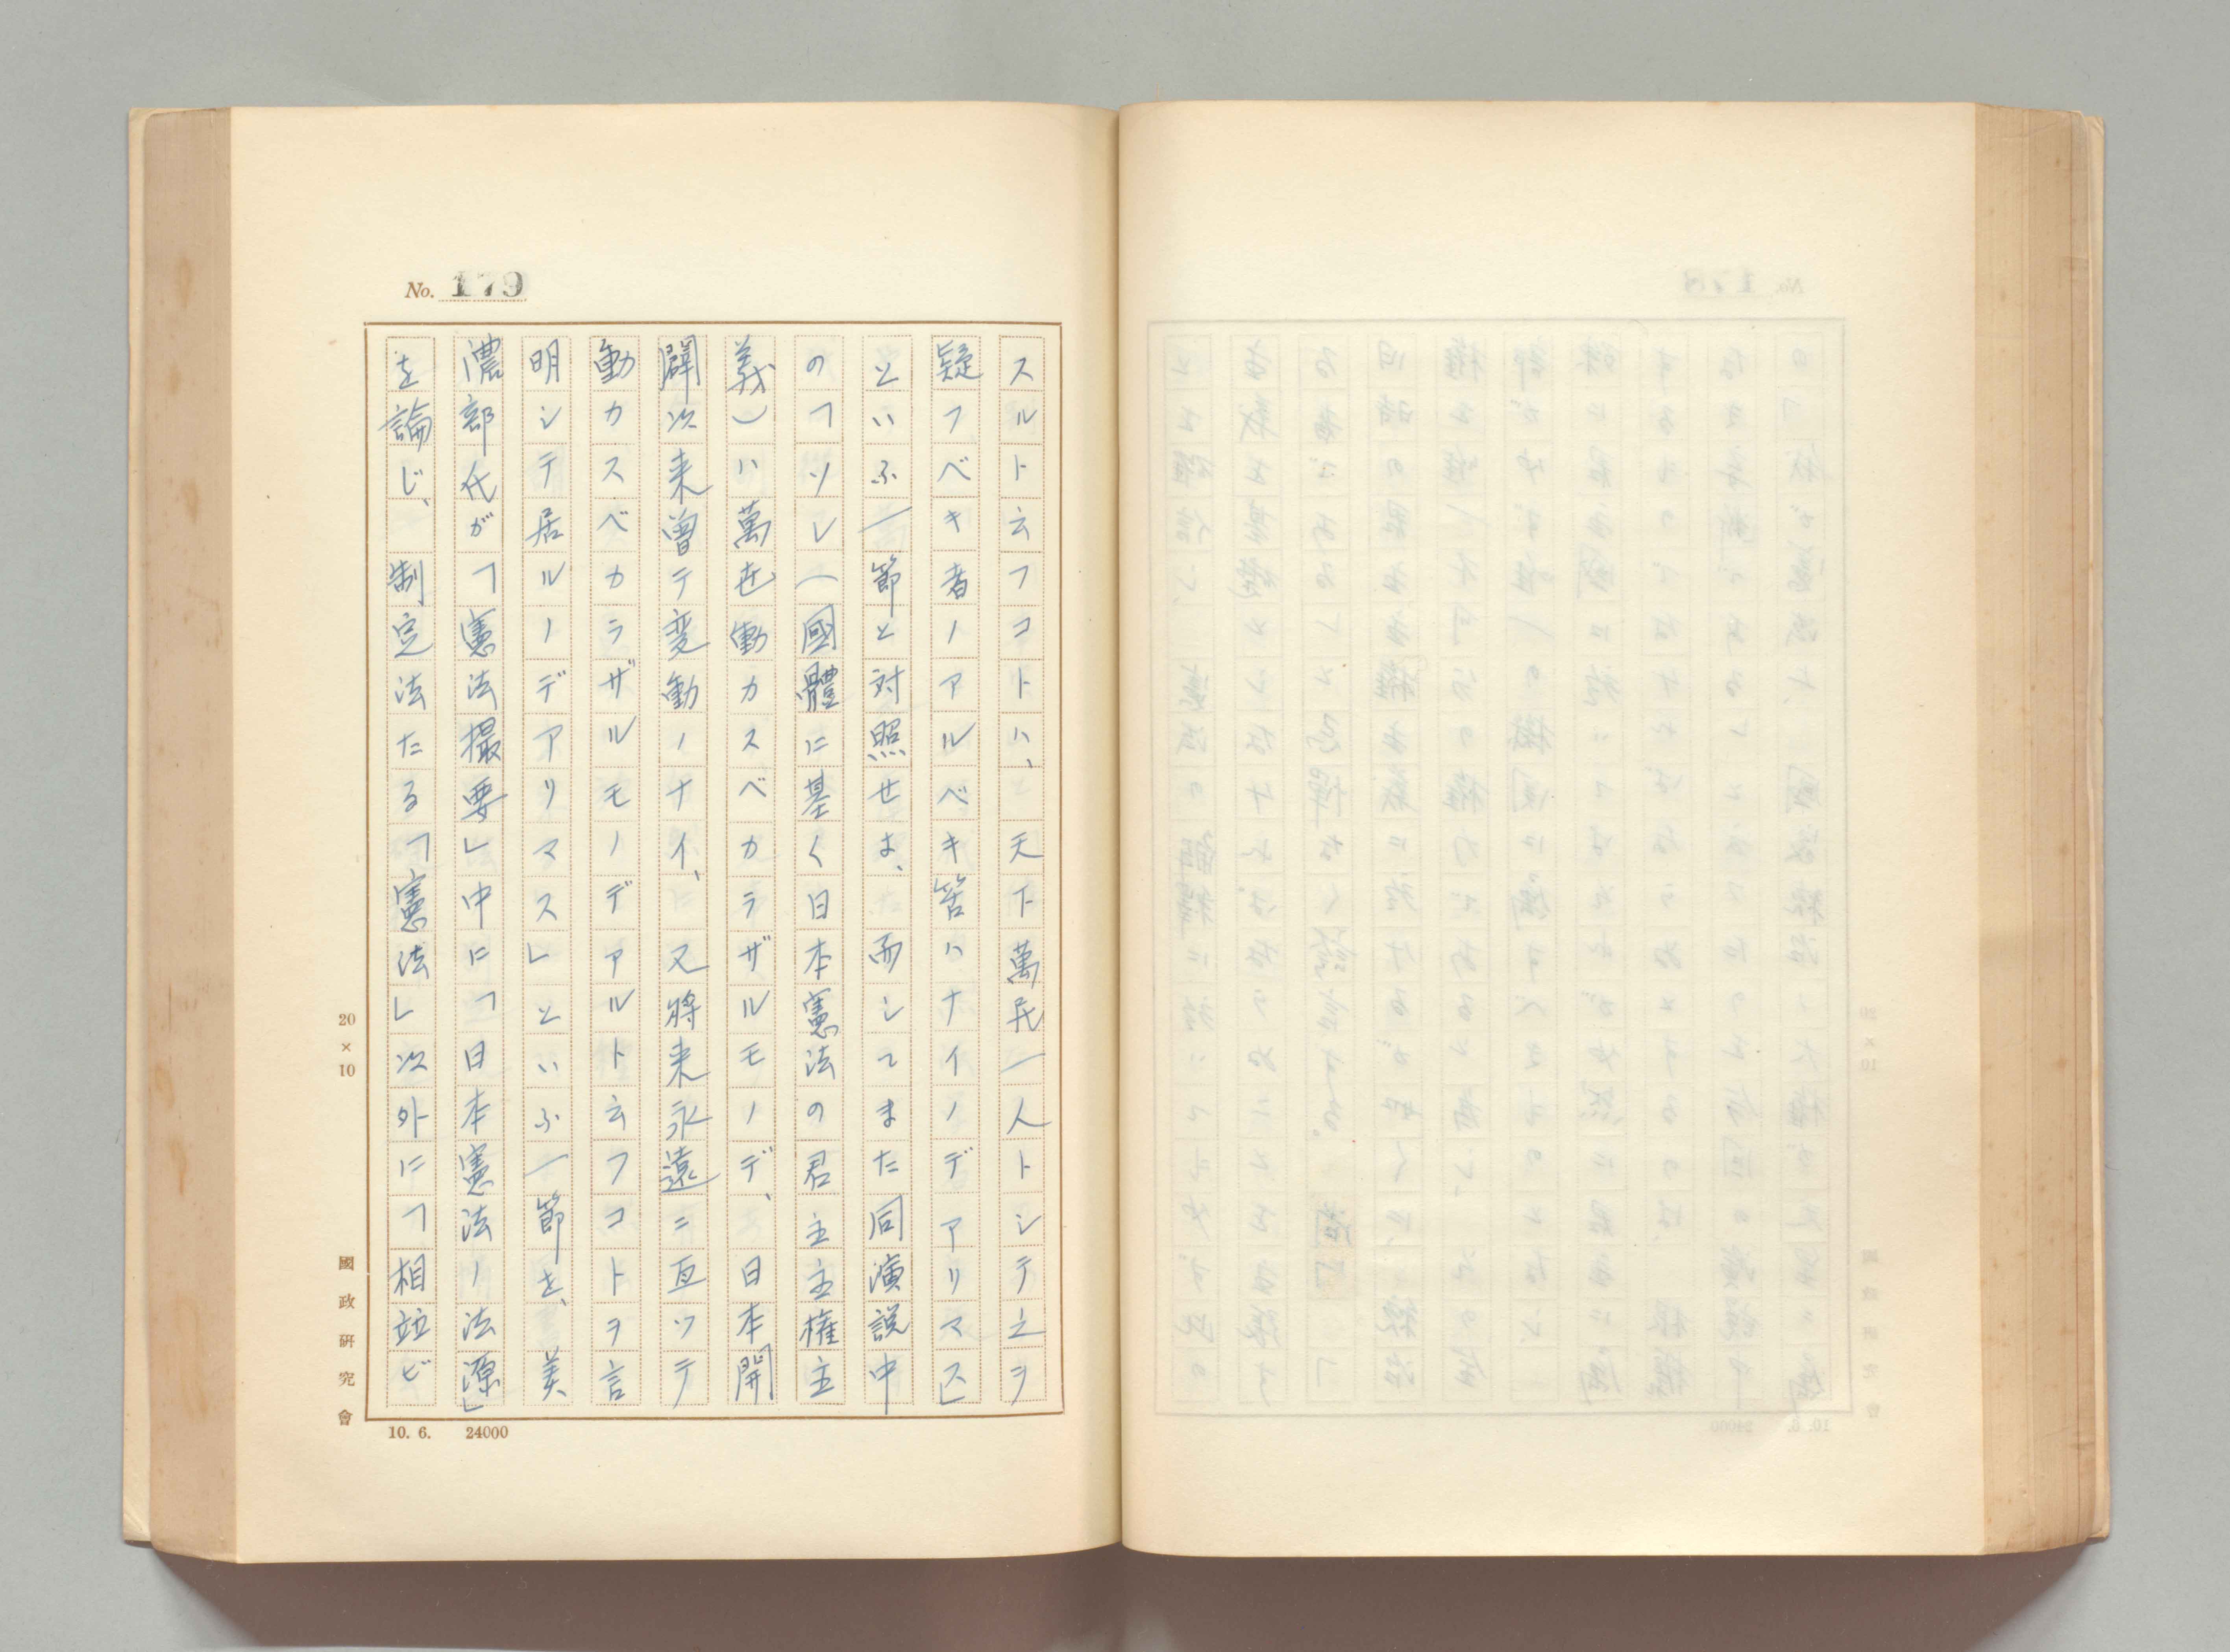 No. 179
スルト云フコトハ、天下萬民一人トシテ之ヲ
疑フベキ者ノアルベキ筈ハナイノデアリマス」
といふ一節と対照せよ、而してまた同演説中
の「ソレ(國體に基く日本憲法の君主主権主
義)ハ萬世動カスベカラザルモノデ、日本開
闢以来曽テ変動ノナイ、又將来永遠ニ亙ツテ
動カスベカラザルモノデアルト云フコトヲ言
明シテ居ルノデアリマス」といふ一節を、美
濃部氏が「憲法撮要」中に「日本憲法ノ法源」
を論じ、制定法たる「憲法」以外に「相並ビ
20×10
國政研究會
10. 6. 24000